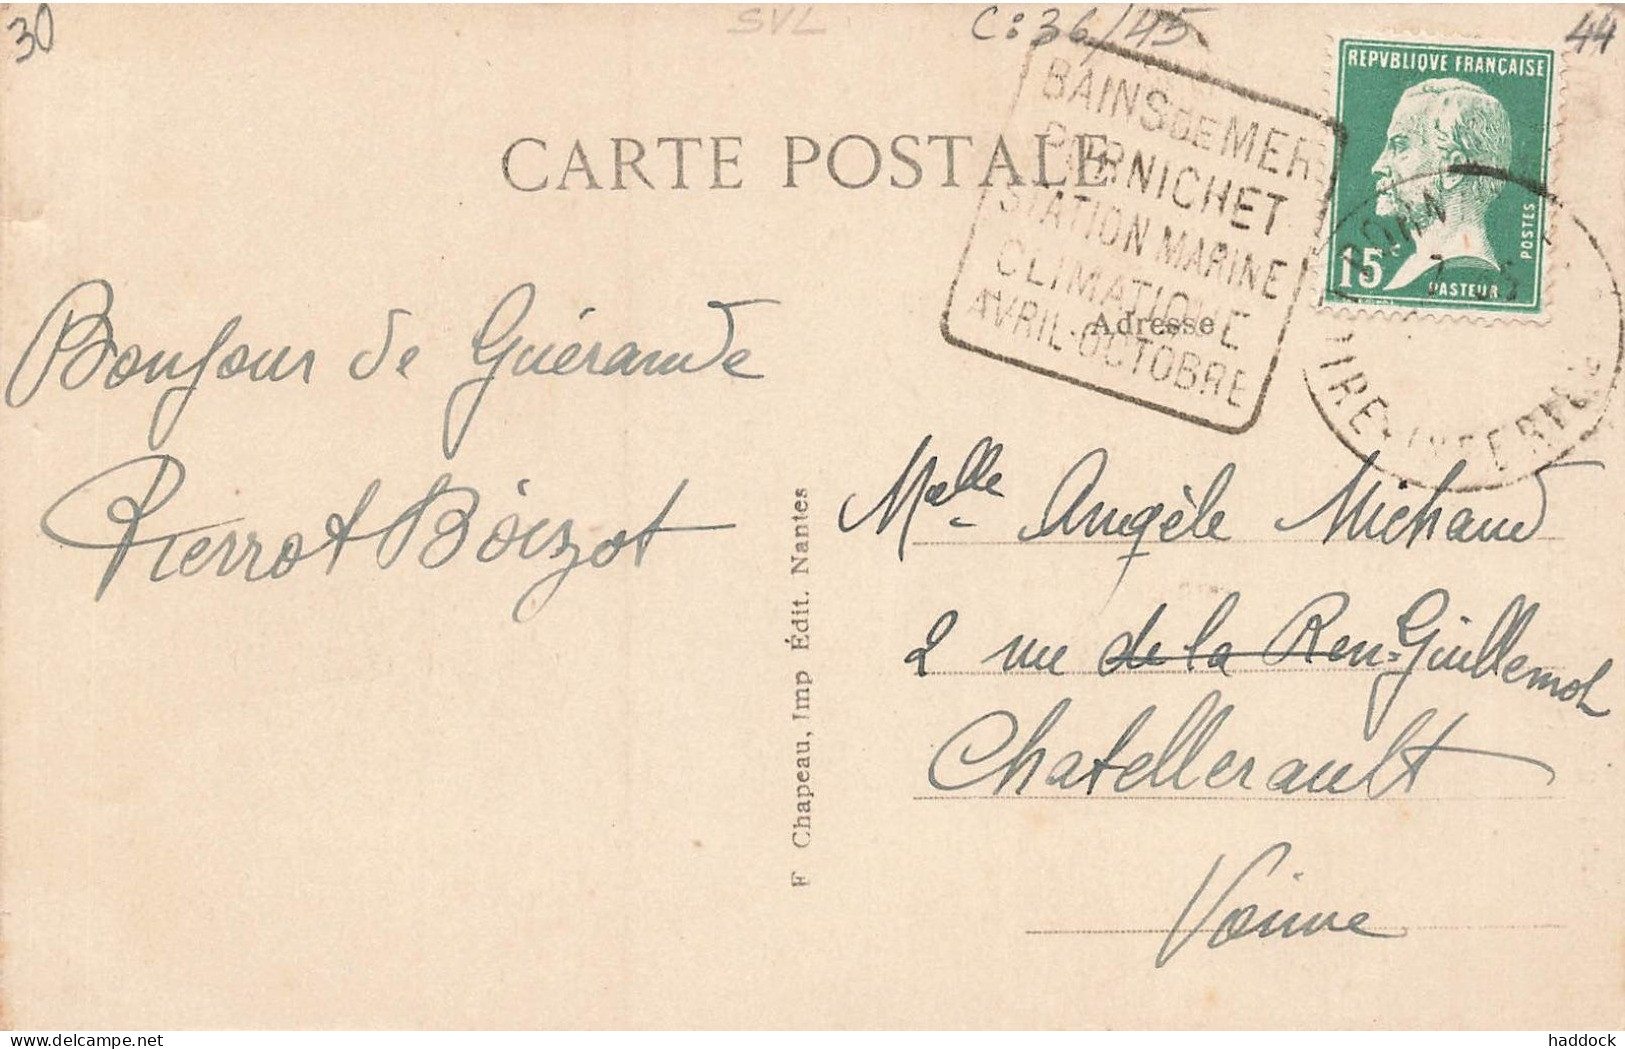 30
SVL
C: 36/45
44
REPVBLIQVE FRANÇAISE
15
POSTES
PASTEUR
CARTE POSTALE
BAINS DE MER
PORNICHET
STATION MARINE
CLIMATIQUE
AVRIL-OCTOBRE
Adresse
Bonjour de Guérande
Pierrot Boizot
F Chapeau, Imp Édit. Nantes
Melle Angèle Michaud
2 rue de la Ren-Guillemot
Chatellerault
Vienne
delcampe.net
haddock